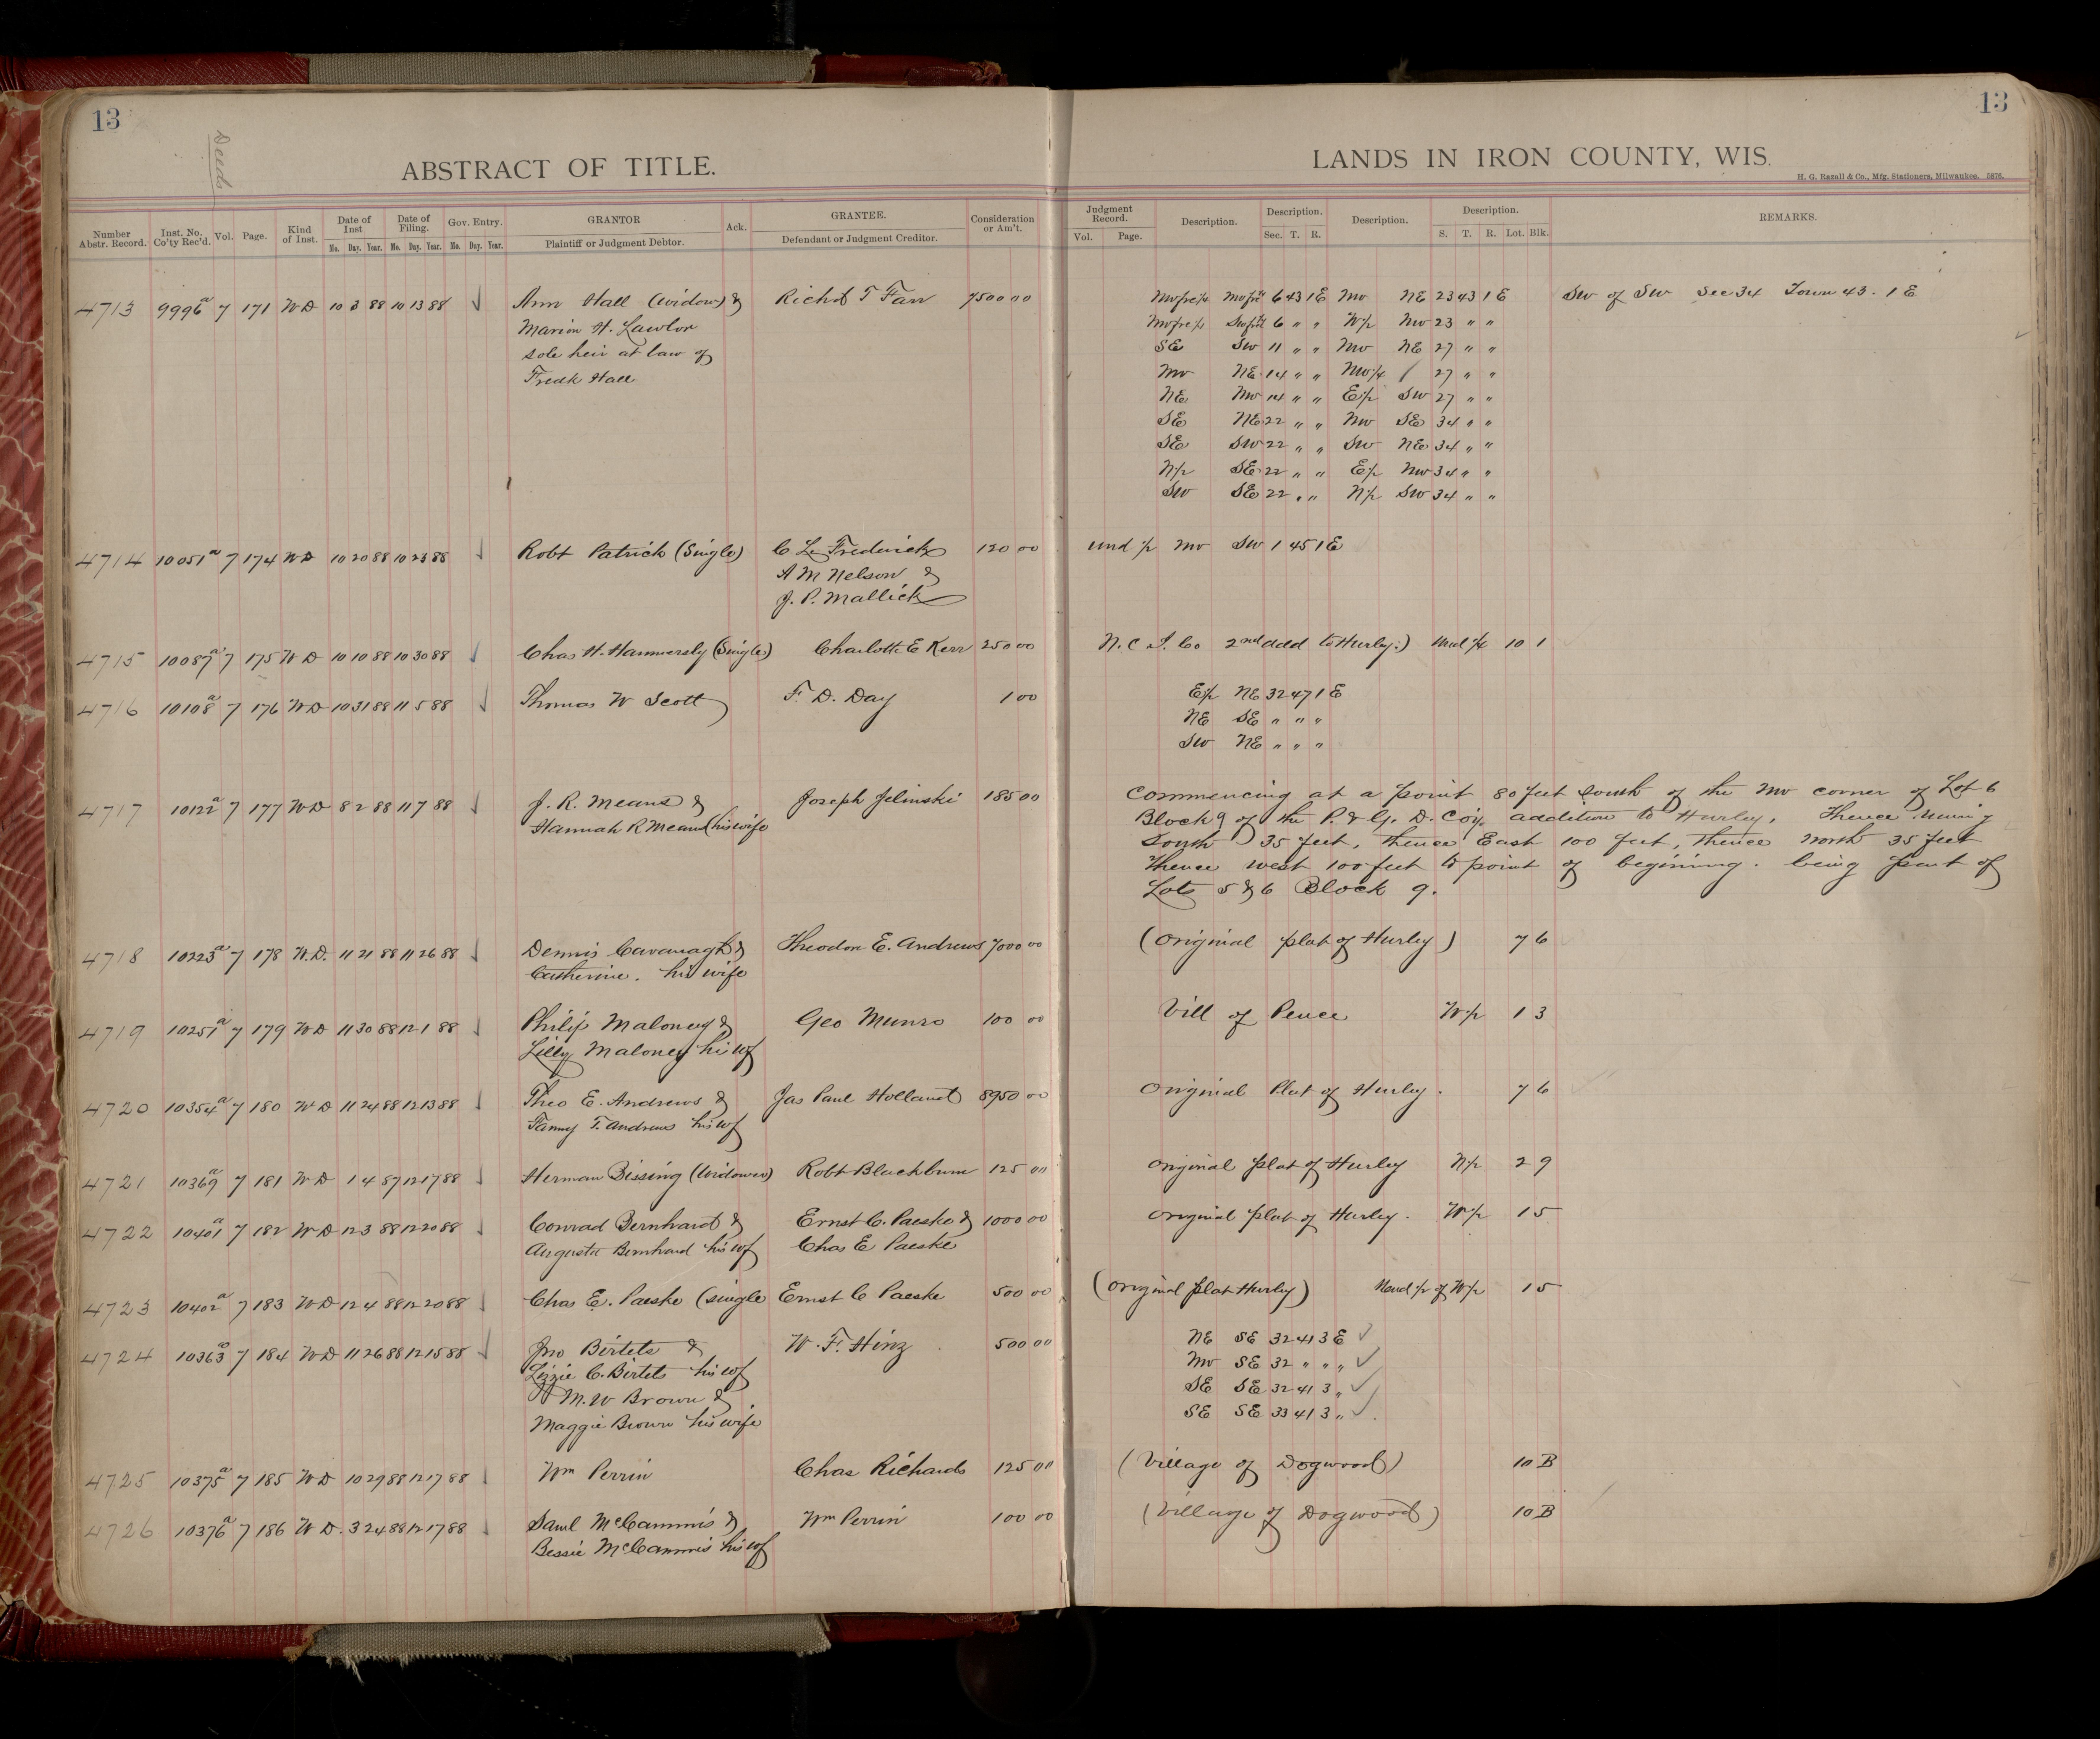 13
Deeds
ABSTRACT OF TITLE.
Number Abstr. Record. Inst. No. Co'ty Rec'd. Vol. Page. Kind of Inst. Date of Inst Mo. Day. Year. Date of Filing. Mo. Day. Year. Gov. Entry. Mo. Day. Year. GRANTOR Plaintiff or Judgment Debtor. Ack. GRANTEE. Defendant or Judgment Creditor. Consideration or Am't.
4713 9996a 7 171 WD 10 3 88 10 13 88 Ann Hall (widow) & Richd T Farr 7500 00
Marion H. Lawlor
sole heir at law of
Fredk Hall
4714 10051a 7 174 WD 10 20 88 10 23 88 Robt Patrick (Single) C L Frederick 120 00
A M Nelson &
J. P. Mallick
4715 10087a 7 175 WD 10 10 88 10 30 88 Chas H. Hammersly (Single) Charlotte E Kerr 250 00
4716 10108a 7 176 WD 10 31 88 11 5 88 Thomas W Scott F. D. Day 1 00
4717 10122a 7 177 WD 8 2 88 11 7 88 J. R. Means & Joseph Jelinski 185 00
Hannah R Means (his wife
4718 10223a 7 178 W.D. 11 21 88 11 26 88 Dennis Cavanagh & Theodore E. Andrews 7000 00
Catherine. his wife
4719 10251a 7 179 WD 11 30 88 12 1 88 Philip Maloney & Geo Munro 100 00
Lilly Maloney his wf
4720 10354a 7 180 WD 11 24 88 12 13 88 Theo E. Andrews & Jas Paul Holland 8950 00
Fanny T. Andrews his wf
4721 10369a 7 181 WD 1 4 87 12 17 88 Herman Bissing (Widower) Robt Blackburn 125 00
4722 10401a 7 182 WD 12 3 88 12 20 88 Conrad Bernhard & Ernst C. Paeske & 1000 00
Augusta Bernhard his wf Chas E Paeske
4723 10402a 7 183 WD 12 4 88 12 20 88 Chas E. Paeske (single Ernst C Paeske 500 00
4724 10363a 7 184 WD 11 26 88 12 15 88 Jno Bertels & W. F. Hinz 500 00
Lizzie C. Bertels his wf
M. W Brown &
Maggie Brown his wife
4725 10375a 7 185 WD 10 29 88 12 17 88 Wm Perrin Chas Richards 125 00
4726 10376a 7 186 WD. 3 24 88 12 17 88 Saml McCammis & Wm Perrin 100 00
Bessie McCammis his wf
13
LANDS IN IRON COUNTY, WIS.
H. G. Razall & Co., Mfg. Stationers, Milwaukee. 5876.
Judgment Record. Vol. Page. Description. Description. Sec. T. R. Description. Description. S. T. R. Lot. Blk. REMARKS.
6 43 1 E NW NE 23 43 1 E SW of SW Sec 34 Town 43. 1 E
6 " " W½ NW 23 " "
SE SW 11 " " NW NE 27 " "
NW NE 14 " " NW¼ 27 " "
NE NW 14 " " E½ SW 27 " "
SE NE 22 " " NW SE 34 " "
SE SW 22 " " SW NE 34 " "
N½ SE 22 " " E½ NW 34 " "
SW SE 22 " " N½ SW 34 " "
und ½ NW SW 1 45 1 E
N. C. I. Co 2nd add to Hurley.) und ¼ 10 1
E½ NE 32 47 1 E
NE SE " " "
SW NE " " "
Commencing at a point 80 feet south of the NW corner of Lot 6
Block 9 of the P. & G. D. Coy. addition to Hurley. Thence runing
South 35 feet, thence East 100 feet, thence north 35 feet
thence west 100 feet to point of begining. being part of
Lots 5 & 6 Block 9.
(original plat of Hurley) 7 6
Vill of Pence W½ 1 3
Original Plat of Hurley. 7 6
original plat of Hurley N½ 2 9
original plat of Hurley. W½ 1 5
(original plat Hurley) Und ½ of W½ 1 5
NE SE 32 41 3 E
NW SE 32 " " "
SE SE 32 41 3 "
SE SE 33 41 3 "
(Village of Dogwood) 10 B
(Village of Dogwood) 10 B